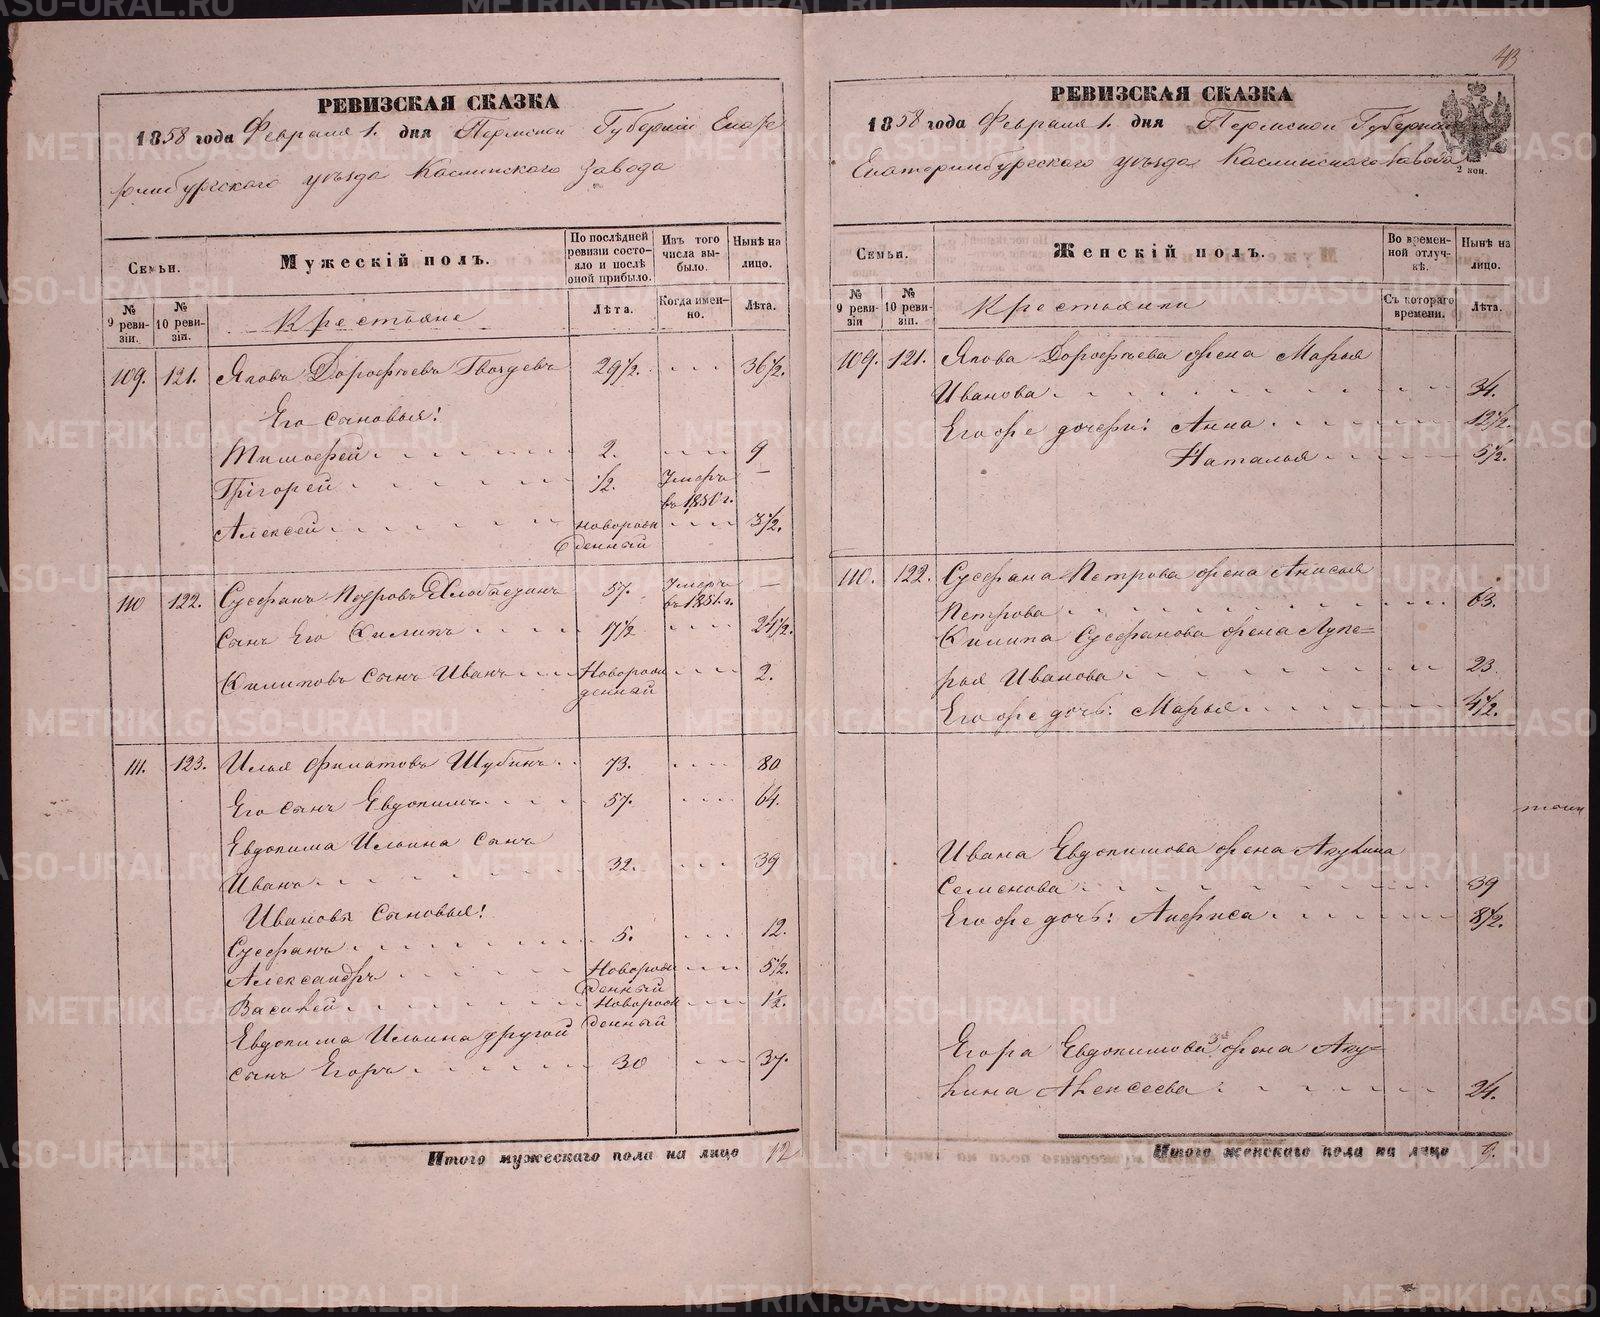 43
РЕВИЗСКАЯ СКАЗКА
1858 года Февраля 1. дня Пермской Губернiи Екате
ринбургскаго уѣзда Каслинскаго завода
Семьи.
Мужескiй полъ.
По послѣдней ревизiи состояло и послѣ оной прибыло.
Изъ того числа выбыло.
Нынѣ на лицо.
№ 9 ревизiи.
№ 10 ревизiи.
Крестьяне
Лѣта.
Когда именно.
Лѣта.
109. 121. Яковъ Дорофѣевъ Гвоздевъ 29½. 36½.
Его сыновья:
Тимофей 2. 9
Григорей ½. Умеръ въ 1850 г. —
Алексей новорожденный 3½.
110 122. Стефанъ Петровъ 57. Умеръ въ 1851 г. —
Сынъ Его Килипъ 17½ 24½.
Килиповъ Сынъ Иванъ Новорожденный 2.
111. 123. Илья Филатовъ Шубинъ 73. 80
Его сынъ Евдокимъ 57. 64.
Евдокима Ильина сынъ
Иванъ 32. 39
Ивановы Сыновья:
Стефанъ 5. 12.
Александръ Новорожденный 5½.
Василей Новорожденный 1½.
Евдокима Ильина другой
сынъ Егоръ 30 37.
Итого мужескаго пола на лицо 12
РЕВИЗСКАЯ СКАЗКА
1858 года Февраля 1. дня Пермской Губернiи
Екатеринбургскаго уѣзда Каслинскаго завода
2 коп.
Семьи.
Женскiй полъ.
Во временной отлучкѣ.
Нынѣ на лицо.
№ 9 ревизiи
№ 10 ревизiи.
Крестьянки
Съ котораго времени.
Лѣта.
109. 121. Якова Дорофѣева жена Марья
Иванова 34.
Его же дочери: Анна 12½.
Наталья 5½.
110. 122. Стефана Петрова жена Анисья
Петрова 63.
Килипа Стефанова жена Луке=
рья Иванова 23
Его же дочь: Марья 4½.
Ивана Евдокимова жена Акулина
Семенова 39
Его же дочь: Анфиса 8½.
Егора Евдокимова жена Аку=
лина Алексеева 24.
Итого женскаго пола на лицо 9.
METRIKI.GASO-URAL.RU